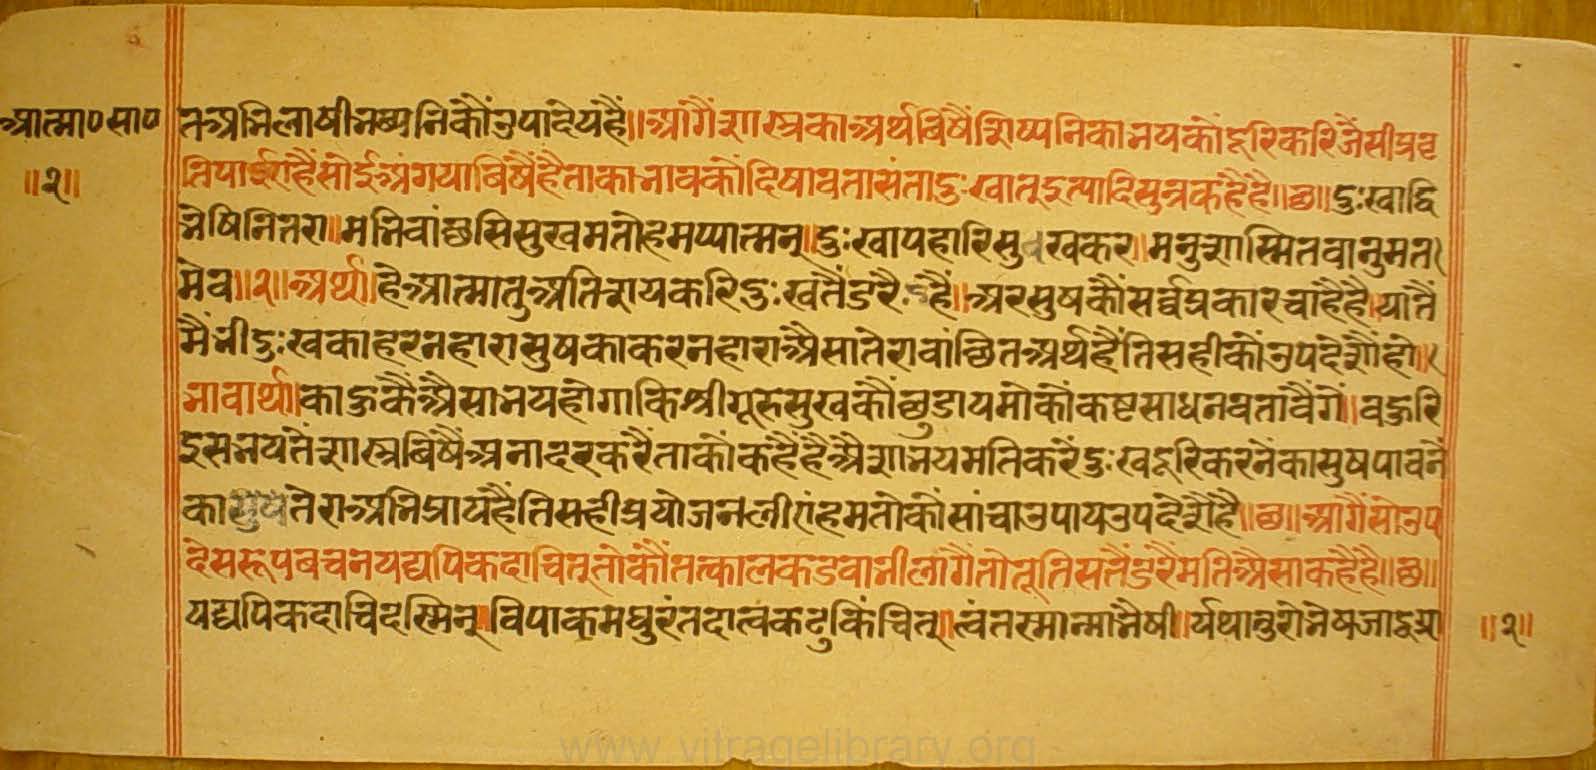 आत्मा० सा०
॥२॥
तअभिलाषीभव्यनिकौंउपादेयहैं॥आगैंशास्त्रकाअर्थविषैंशिष्यनिकाभयकोंदूरिकरिजैसीप्रवृ
त्तिपाईएहैंसोईअंगयाविषैंहैताकाभावकौंदिषावतासंतादुःखात्इत्यादिसुत्रकहैहै॥छ॥दुःखाद्वि
भेषिनितरा॥मभिवांछसिसुखमतोहमप्पात्मन्॥दुःखापहारिसुखकर॥मनुशास्मितवानुमत
मेव॥२॥अर्थ॥हेआत्मातुअतिशयकरिदुःखतैंडरैहैं॥अरसुषकौंसर्वप्रकारचाहैहै।यातैं
मैंभीदुःखकाहरनहारासुषकाकरनहाराअैसातेरावांछितअर्थहैंतिसहीकोंउपदेशौंहों॥
भावार्थ॥काऊकैंअैसाभयहोगाकिश्रीगूरुसुखकौंछुडायमोकौंकष्टसाधनवतावैंगें॥वहुरि
इसभयतेंशास्त्रबिषैंअनादरकरैंताकौंकहैंहैंअैशाभयमतिकरैंदुःखदूरिकरनेंकासुषपावनें
कातेराअभिप्रायहैंतिसहीप्रयोजनलीएंहमतोकौंसांचाउपायउपदेशैंहै॥छ॥आगैंसोउप
देसरूपबचनयद्यपिकदाचित्तोकौंतत्कालकडवाभीलागैंतोतूतिसतैंडरैमतिअैसाकहैहै॥छ॥
यद्यपिकदाचिदस्मिन्।विपाकमधुरंतदात्वकटुकिंचित्।त्वंतस्मान्माभैषी।र्यथातुरोभेषजादुग्रा
॥२॥
www.vitragelibrary.org